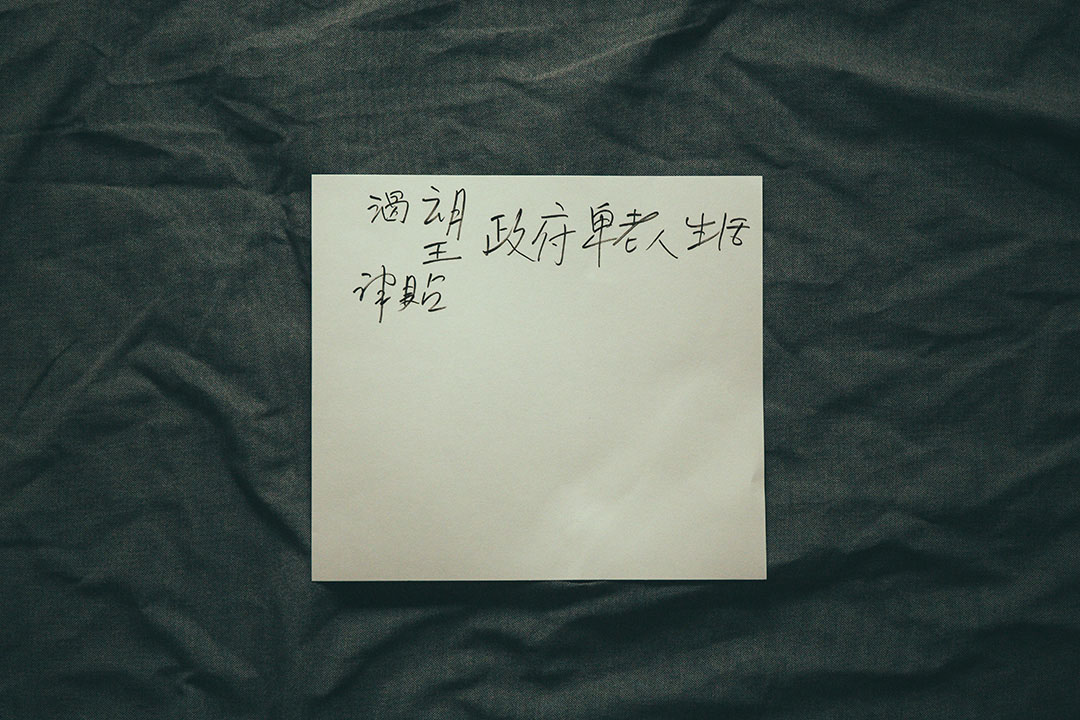 渴望政府单老人生活
津贴